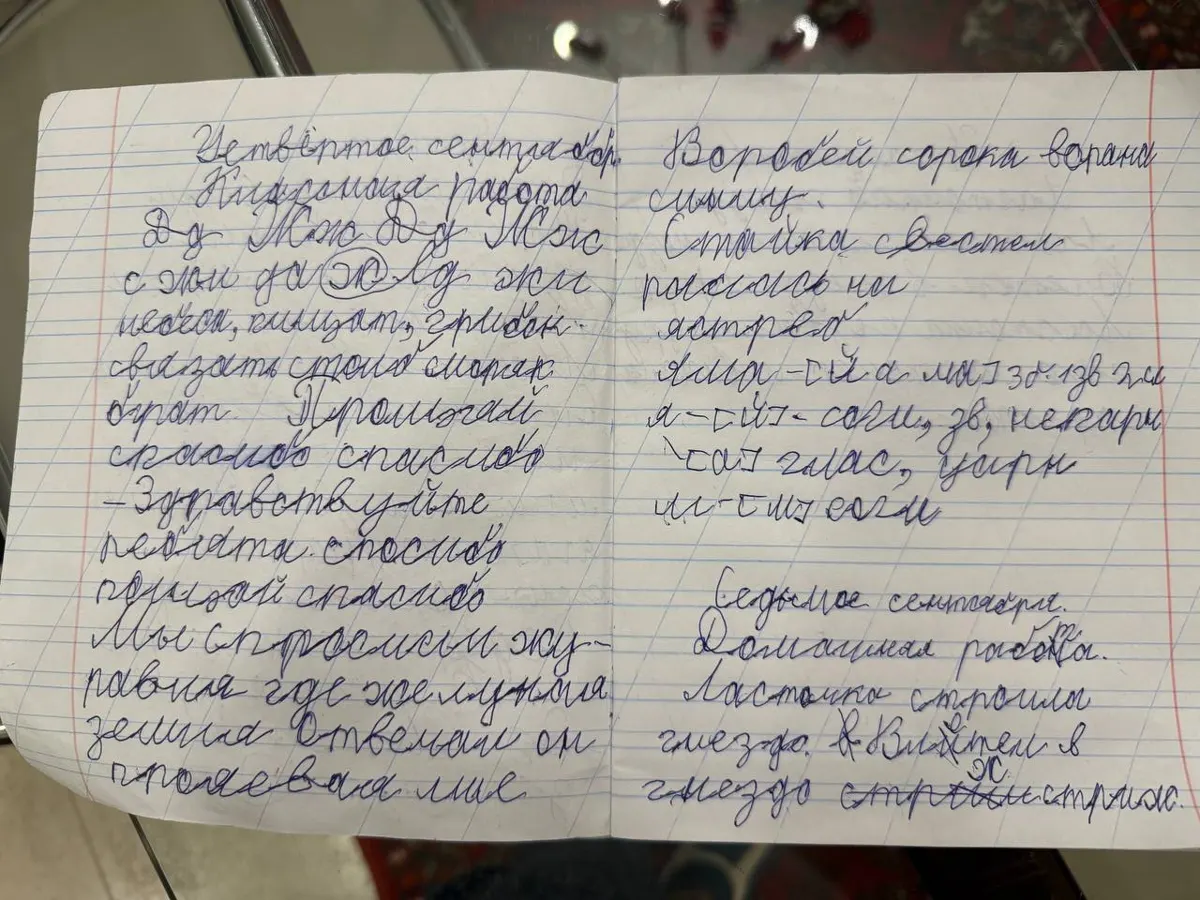 Четвёртое сентяборя.
Класмоца работа
Дд Жж Дд Жж
с жи да ж лд жи
небеса, кишат, грибок.
связать столб моряк
брат Промзай
спасибо спасибо
-Здравствуйте
ребята. спосибо
понзай спасибо
Мы спросиси жу-
равля где же лунная
земля Отвемал он
поляевая мие
Воробей сорока ворана
синиц.
Стайка свестел
рамась на
ястреб
яма -[й а ма] 3б. 1зв 2гл
я-[й]- согл, зв, непарн
\[а] глас, ударн
м-[м] согл
Седьмое сентября.
Домашняя работа.
Ласточка строила
гнездо. Влетел в
гнездо стрим стриж.